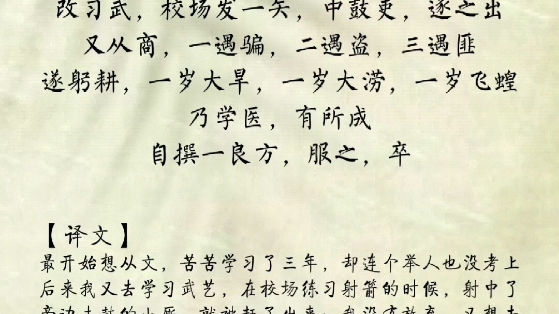 改习武，校场发一矢，中鼓吏，逐之出
又从商，一遇骗，二遇盗，三遇匪
遂躬耕，一岁大旱，一岁大涝，一岁飞蝗
乃学医，有所成
自撰一良方，服之，卒
【译文】
最开始想从文，苦苦学习了三年，却连个举人也没考上
后来我又去学习武艺，在校场练习射箭的时候，射中了